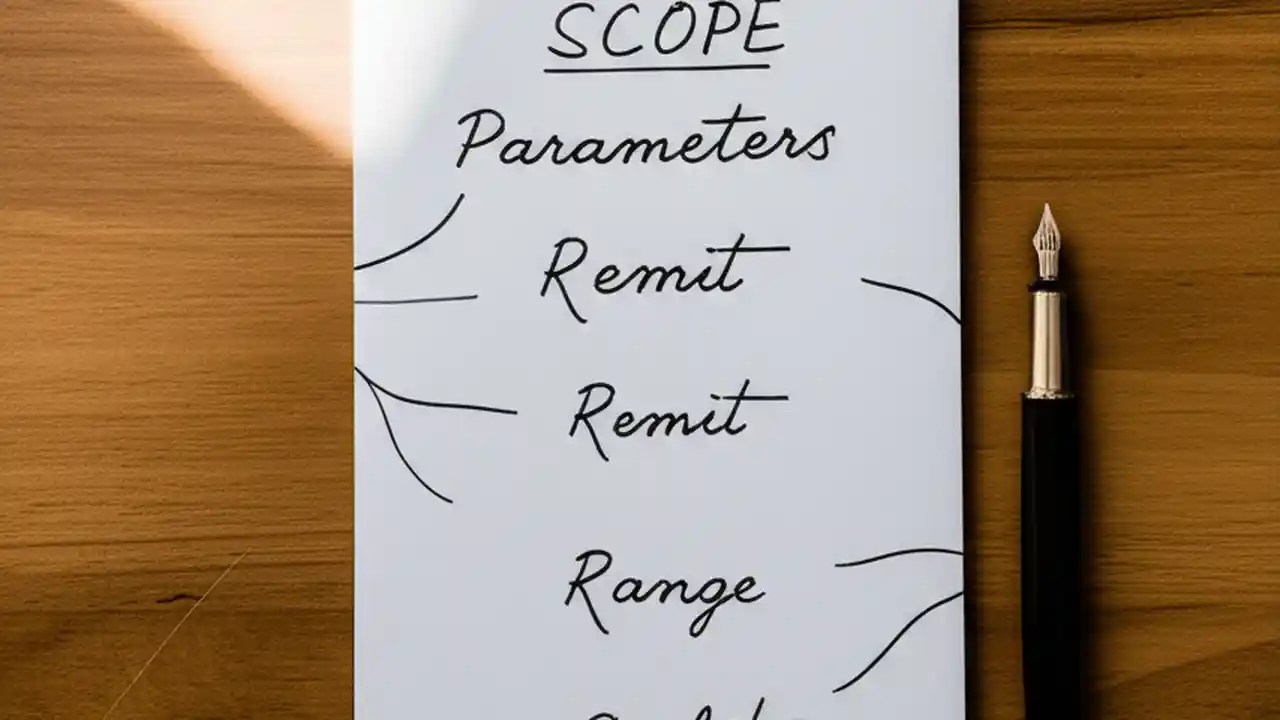 SCOPE
Parameters
Remit
Remit
Range